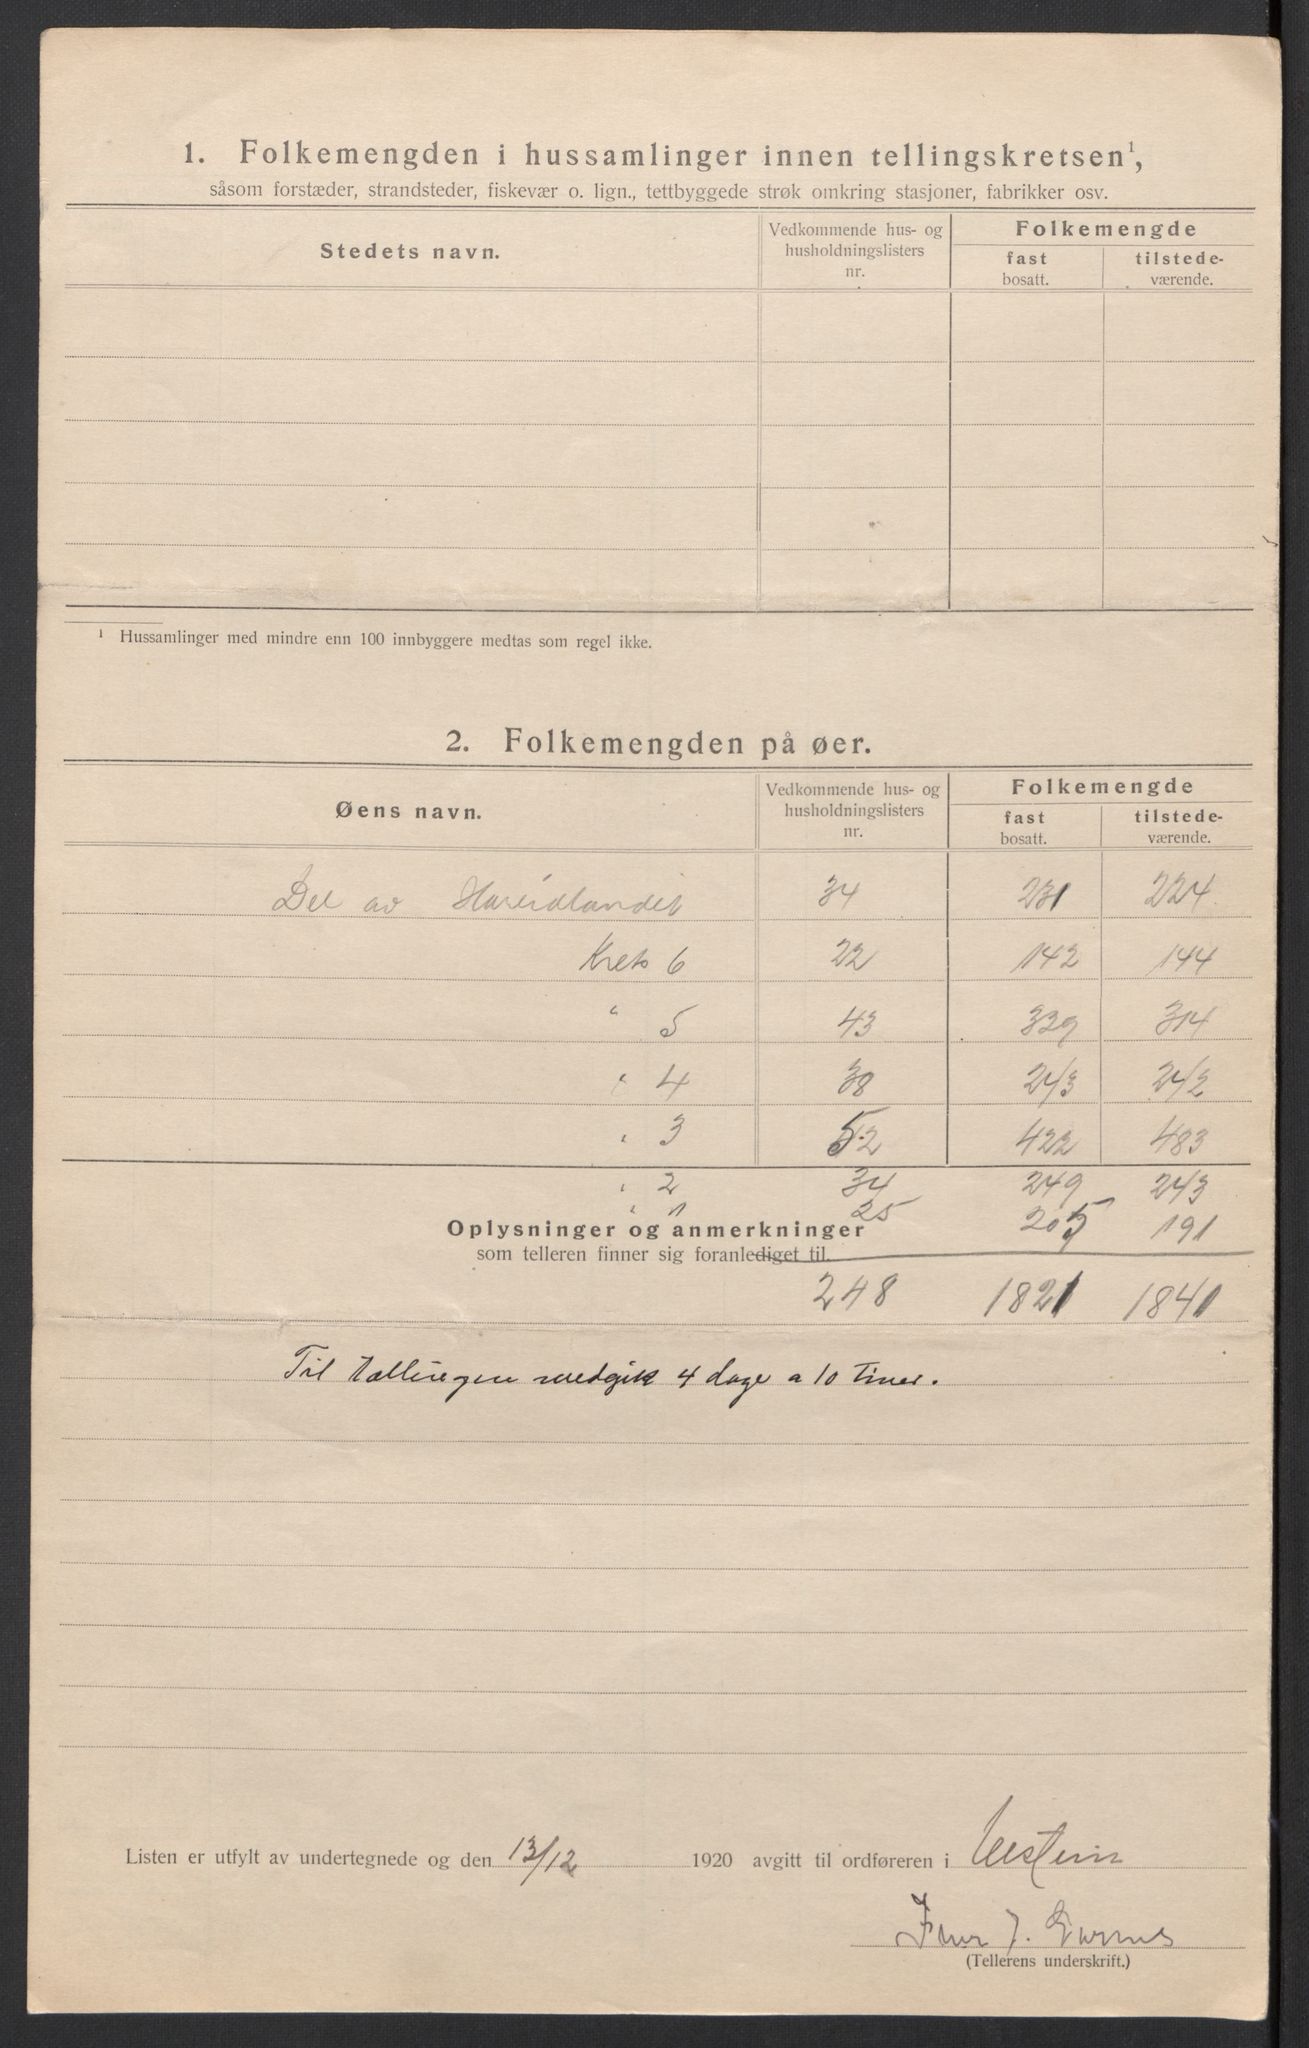 1. Folkemengden i hussamlinger innen tellingskretsen¹,
såsom forstæder, strandsteder, fiskevær o. lign., tettbyggede strøk omkring stasjoner, fabrikker osv.
Stedets navn. Vedkommende hus- og husholdningslisters nr. Folkemengde
fast bosatt. tilstede-værende.
¹ Hussamlinger med mindre enn 100 innbyggere medtas som regel ikke.
2. Folkemengden på øer.
Øens navn. Vedkommende hus- og husholdningslisters nr. Folkemengde
fast bosatt. tilstede-værende.
Del av Hareidlandet 34 231 224
Krets 6 22 142 144
" 5 43 329 314
" 4 38 243 242
" 3 52 422 483
" 2 34 249 243
" 1 25 205 191
Oplysninger og anmerkninger
som telleren finner sig foranlediget til.
248 1821 1841
Til tællingen medgik 4 dage a 10 timer.
Listen er utfylt av undertegnede og den 13/12 1920 avgitt til ordføreren i Ulstein
J.
(Tellerens underskrift.)